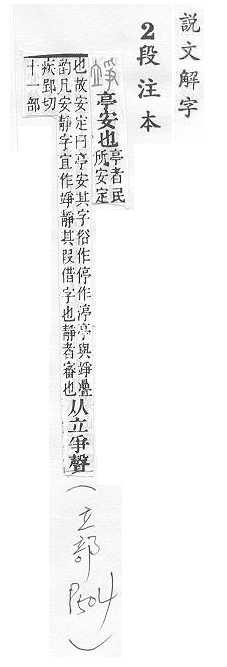 説文解字
2段注本
竫亭安也亭者民
所安定
也故安定曰亭安其字俗作停作渟亭與竫疊
韵凡安靜字宜作竫靜其叚借字也靜者審也从立爭聲
疾郢切
十一部
(立部P504)